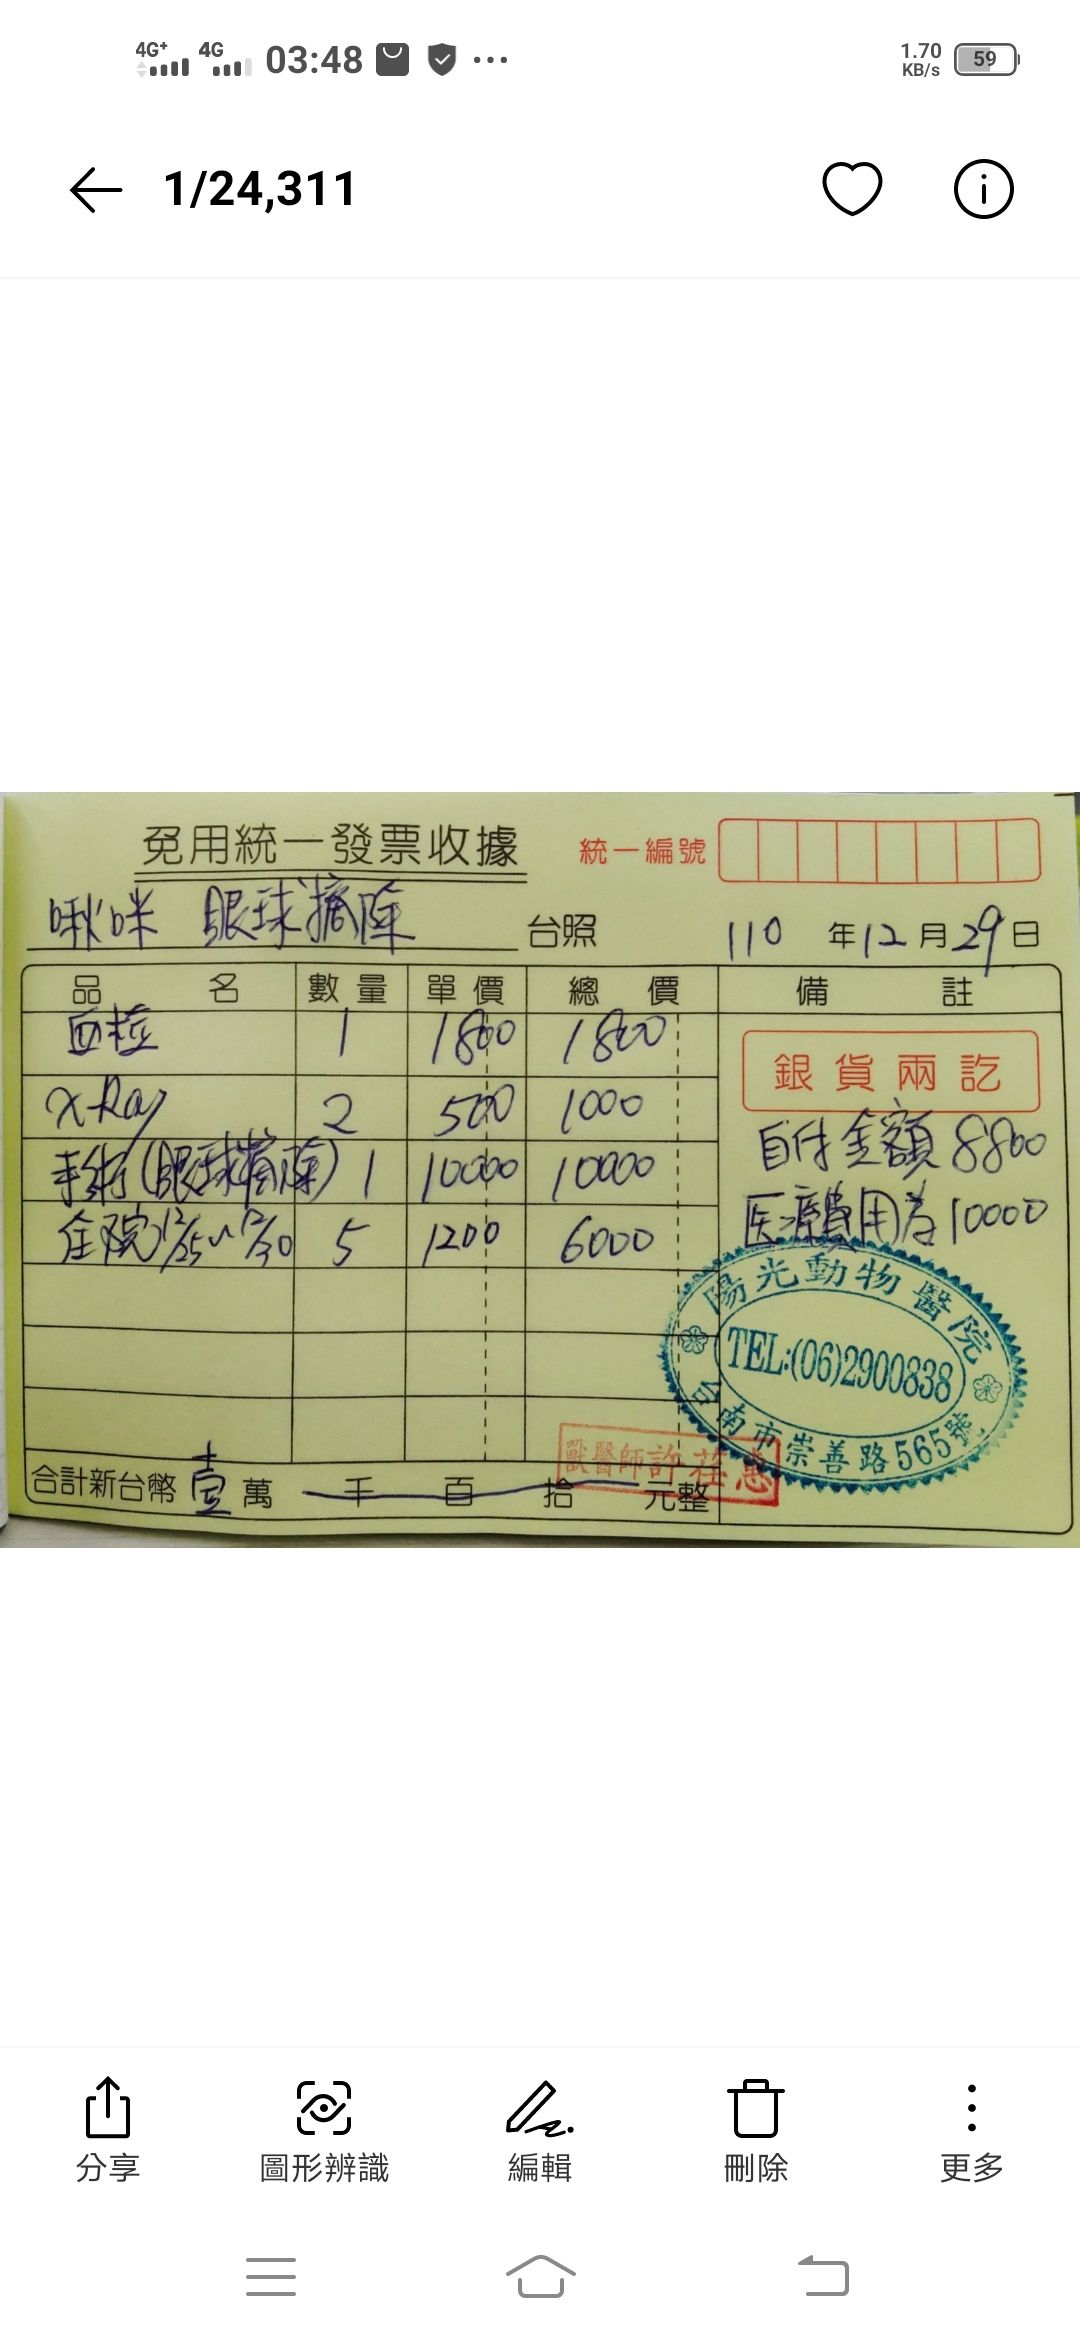 4G+ 4G 03:48 ... 1.70 KB/s 59
1/24,311
免用統一發票收據 統一編號
啾咪 眼球摘除 台照 110 年 12 月 29 日
品名 數量 單價 總價 備註
血檢 1 1800 1800
銀貨兩訖
X-Ray 2 500 1000
自付金額 8800
手術(眼球摘除) 1 10000 10000
医療費用為 10000
住院 12/25~12/30 5 1200 6000
陽光動物醫院
TEL:(06)2900838
台南市崇善路565號
獸醫師許莊
合計新台幣 壹 萬 千 百 拾 元整
分享 圖形辨識 編輯 刪除 更多